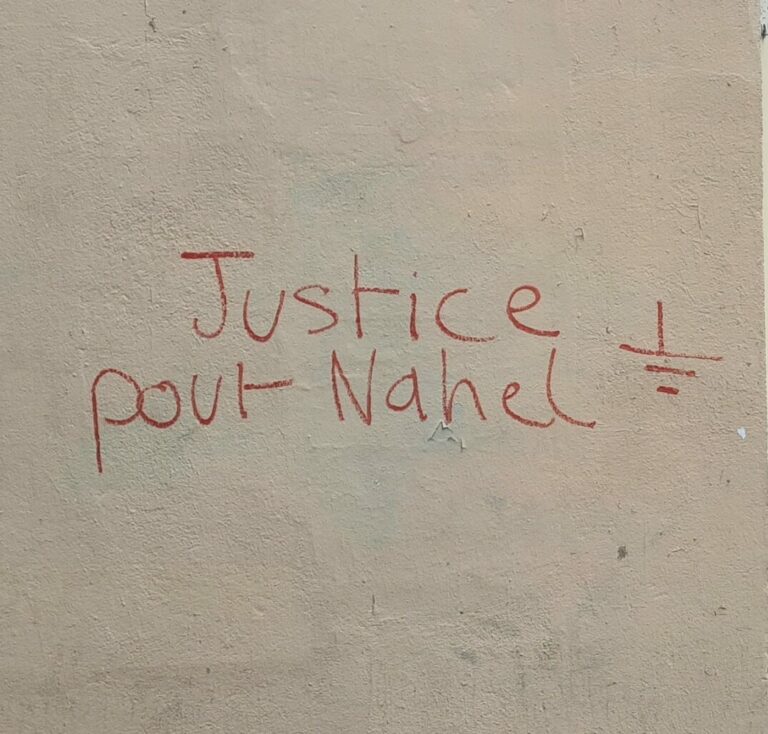 Justice
pour Nahel